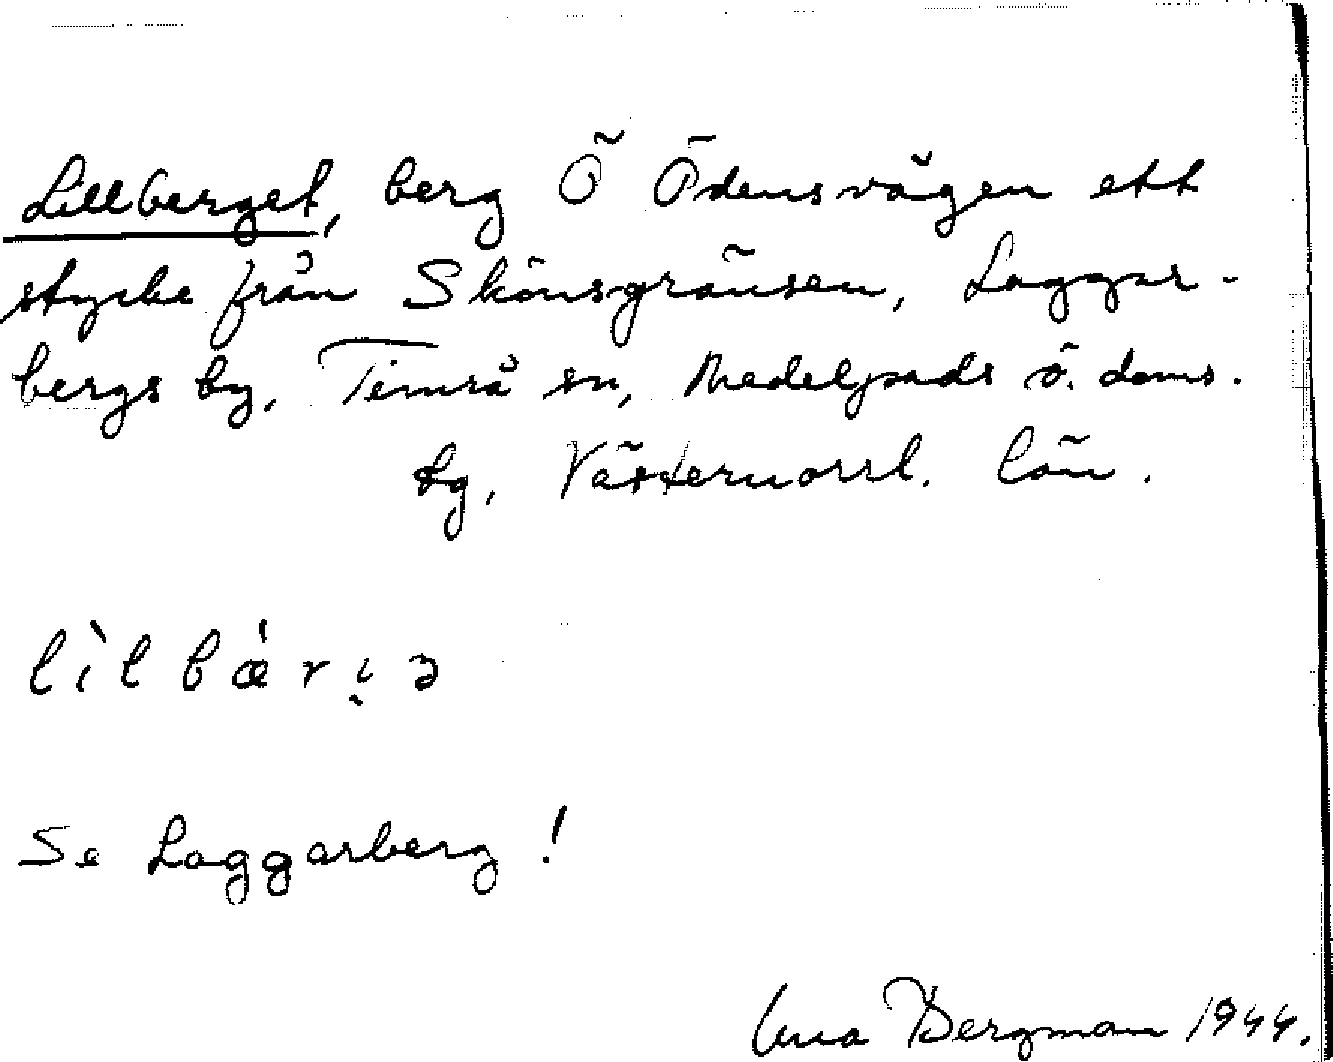 Lillberget, berg Ö Ödensvägen ett
stycke från Skönsgränsen, Laggar-
bergs by, Timrå sn, Medelpads ö. doms.
bg, Västernorrl. län.
lìlbǽri̯ə
Se Laggarberg!
Bergman 1944.